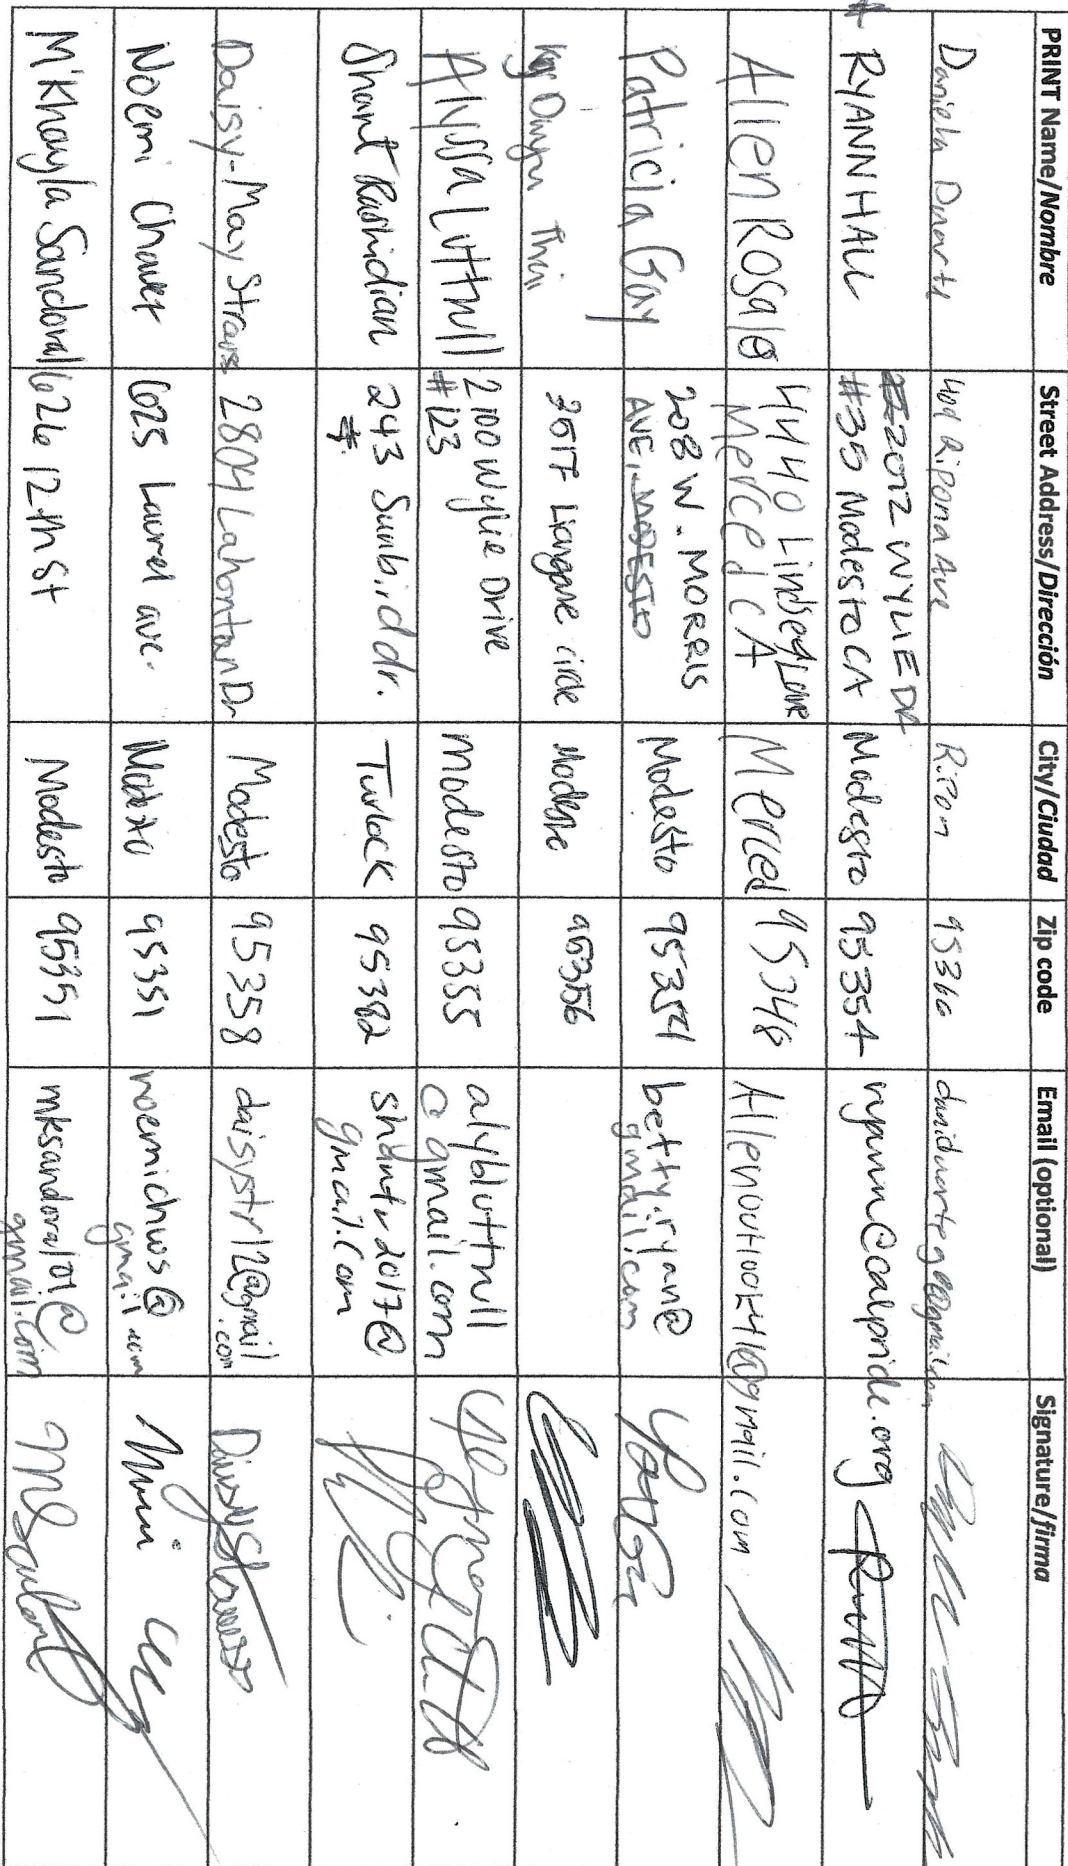 PRINT Name/Nombre Street Address/Dirección City/Ciudad Zip code Email (optional) Signature/firma
Daniela Ripona Ave Ripon 95366
RYANN HALL 2012 WYLIE DR
#35 Modesto CA Modesto 95354 ryann@calpride.org
Allen 4440 Lindsey Lane
Merced CA Merced 95348 Allenoutlook41@gmail.com
Patricia Gay 208 W. MORRIS
AVE, MODESTO Modesto 95354 betty.ryan@
gmail.com
circle Modesto 95356
Alyssa Luttrull 2100 Wylie Drive
#123 modesto 95355 alybluttrull
@gmail.com
Shant Rashidian 243 Sunbird dr. Turlock 95382 shantr2017@
gmail.com
Daisy-May Strauss 2804 Lahontan Dr Modesto 95358 daisystr12@gmail
.com
Noemi Chavez 625 Laurel ave. Modesto 95351 noemichvs@
gmail.com
M'Khayla Sandoval 626 12th St Modesto 95351 mksandoval01@
gmail.com